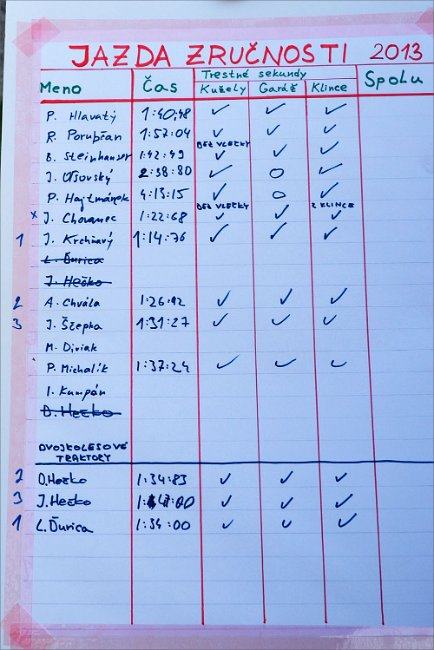 JAZDA ZRUČNOSTI 2013
Meno Čas Trestné sekundy Spolu
Kužely Garáž Klince
P. Hlavatý 1:40:48 ✓ ✓ ✓
R. Porubčan 1:57:04 ✓ ✓ ✓
B. Steinhauser 1:42:49 BEZ VLEČKY ✓ ✓ ✓
J. Oľšovský 2:38:80 ✓ O ✓
P. Hajtmánek 4:13:15 ✓ O ✓
x J. Chovanec 1:22:68 BEZ VLEČKY ✓ ✓ 2 KLINCE ✓
1 J. Krchňavý 1:14:76 ✓ ✓ ✓
L. Ďurica
J. Hečko
2 A. Chvála 1:26:92 ✓ ✓ ✓
3 J. Štepka 1:31:27 ✓ ✓ ✓
M. Diviak
P. Michalík 1:37:24 ✓ ✓ ✓
I. Kumpán
D. Hečko
DVOJKOLESOVÉ
TRAKTORY
2 D. Hečko 1:34:83 ✓ ✓ ✓
3 J. Hečko ✓ ✓ ✓
1 L. Ďurica 1:34:00 ✓ ✓ ✓